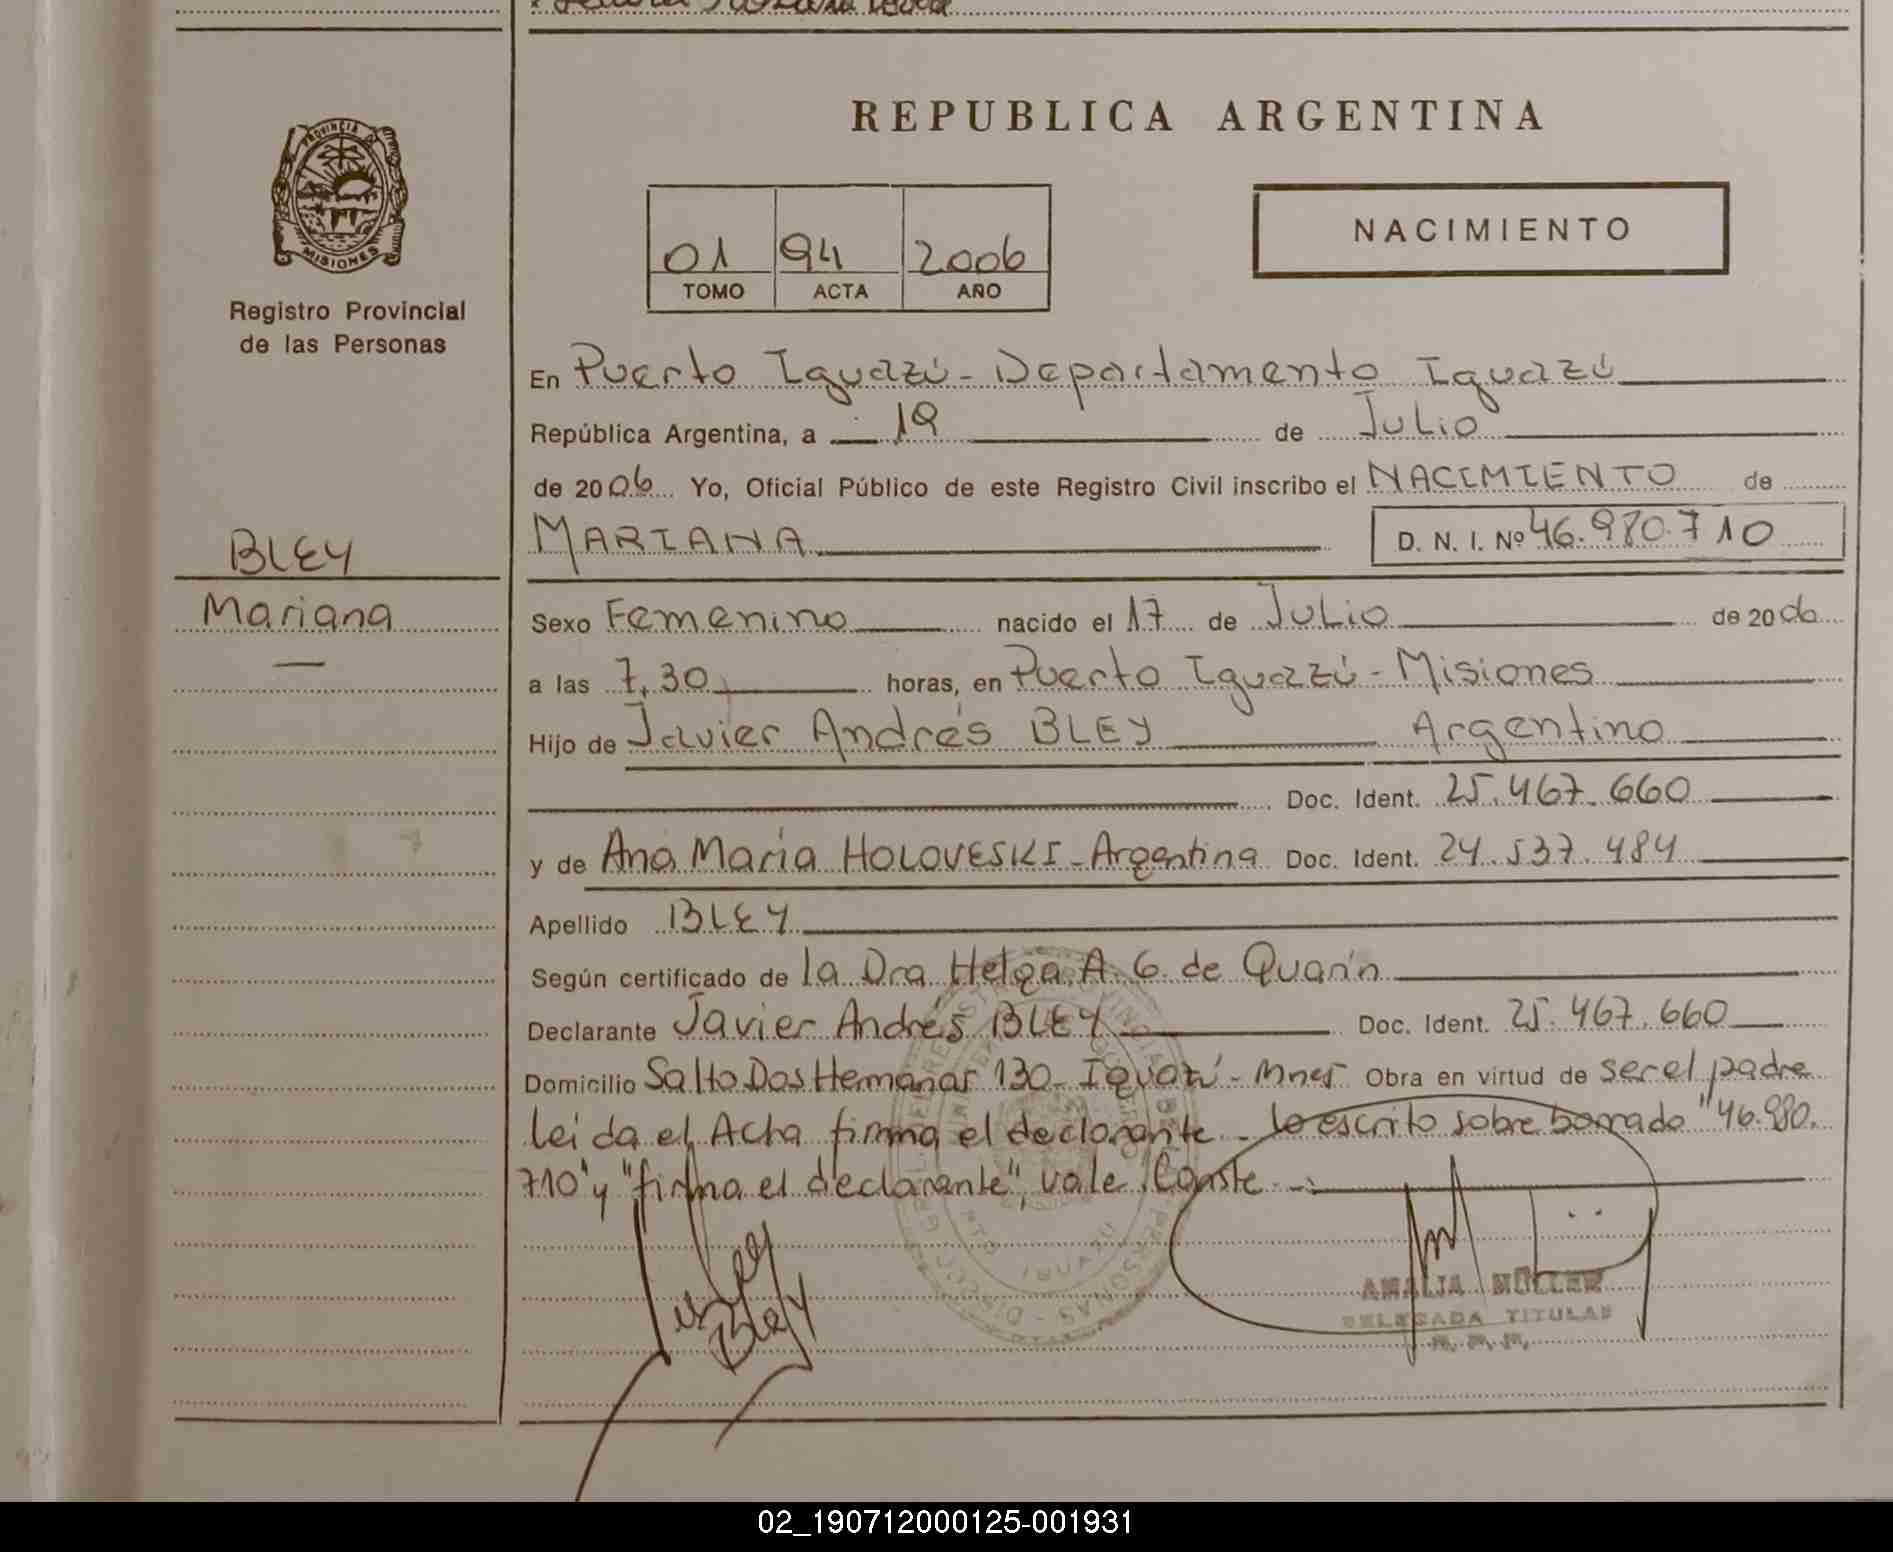 REPUBLICA ARGENTINA
PROVINCIA D
MISIONES
Registro Provincial
de las Personas
01 94 2006
TOMO ACTA AÑO
NACIMIENTO
En Puerto Iguazú - Departamento Iguazú
República Argentina, a 19 de Julio
de 2006 Yo, Oficial Público de este Registro Civil inscribo el NACIMIENTO de
BLEY
Mariana
MARIANA D. N. I. Nº 46.980.710
Sexo Femenino nacido el 17 de Julio de 2006
a las 7,30 horas, en Puerto Iguazú - Misiones
Hijo de Javier Andrés BLEY Argentino
Doc. Ident. 25.467.660
y de Ana María HOLOVESKI - Argentina Doc. Ident. 24.537.484
Apellido BLEY
Según certificado de la Dra Helga A. G. de Quarín
Declarante Javier Andrés BLEY Doc. Ident. 25.467.660
Domicilio Salto Dos Hermanas 130 - Iguazú - Mnes Obra en virtud de ser el padre
Leida el Acta firma el declarante - lo escrito sobre borrado "46.980.
710" y "firma el declarante", vale. Conste -.
Bley
AMALIA MÜLLER
DELEGADA TITULAR
R. P. P.
02_190712000125-001931